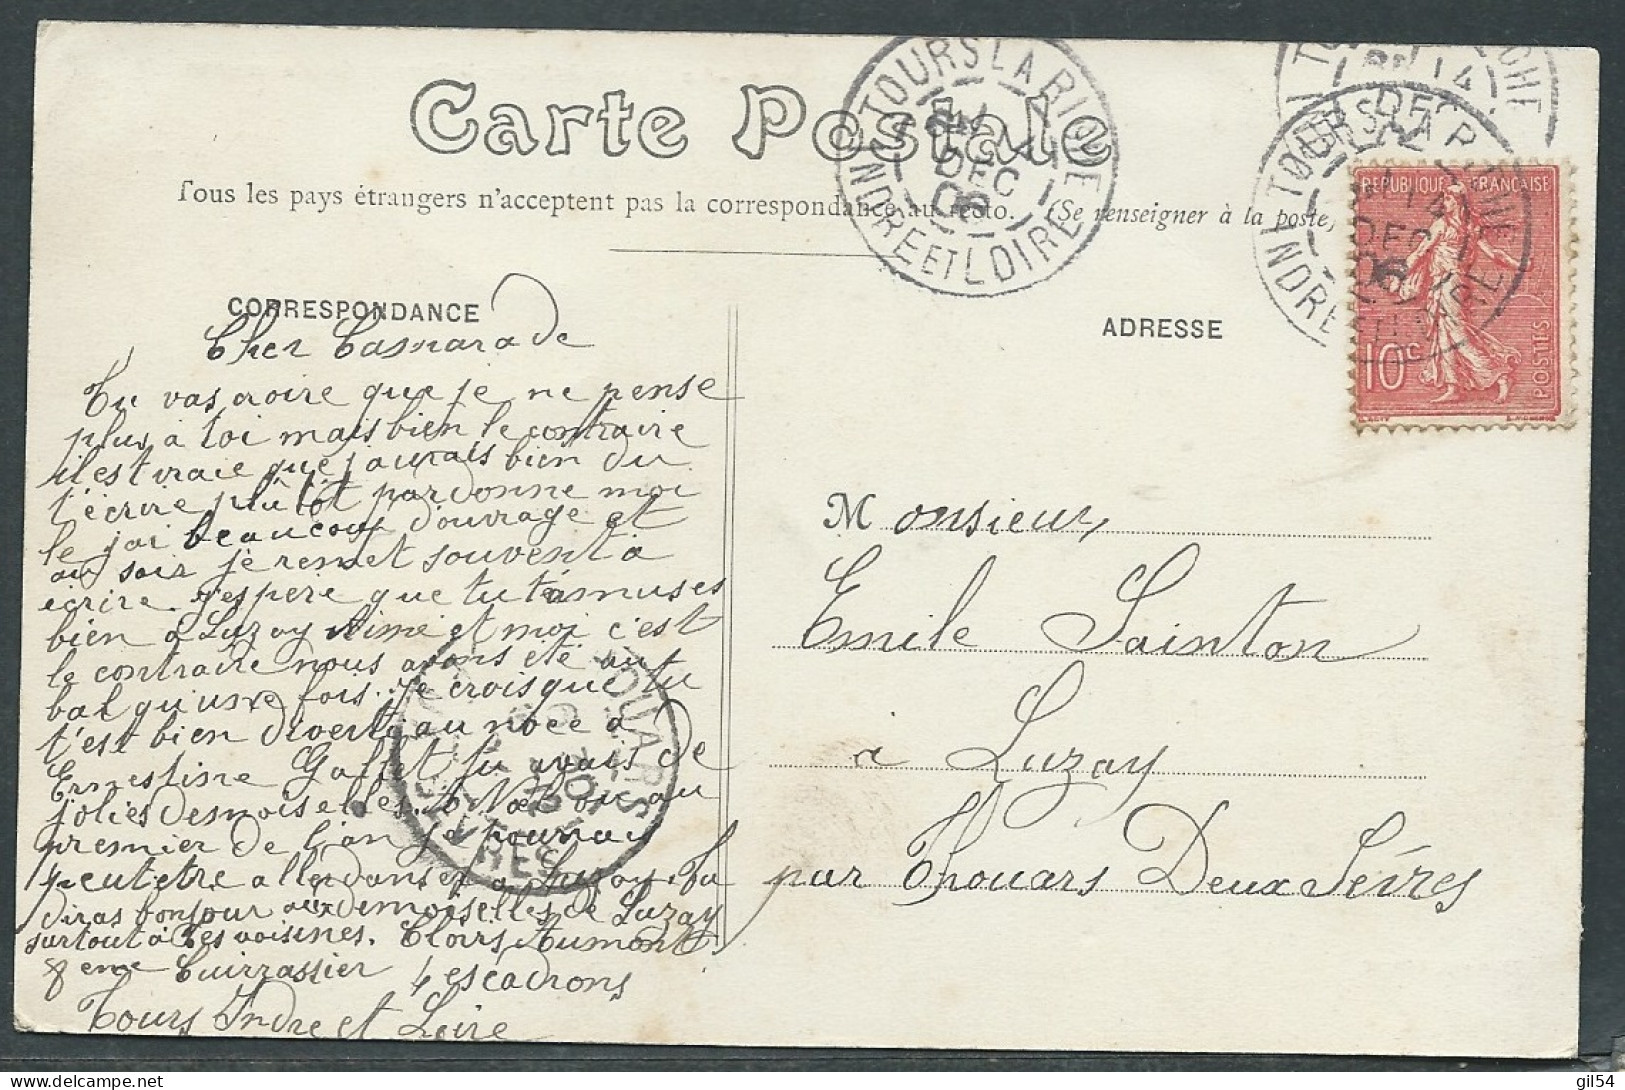 Carte Postale
Tous les pays étrangers n'acceptent pas la correspondance au recto. (Se renseigner à la poste)
TOURS LA RICHE
DEC
06
INDRE ET LOIRE
14
DEC
TOURS LA RICHE
14
DEC
06
INDRE ET LOIRE
REPUBLIQUE FRANÇAISE
10c
POSTES
CORRESPONDANCE
ADRESSE
Cher Camarade
Tu vas croire que je ne pense
plus à toi mais bien le contraire
il est vraie que j'aurais bien du
t'écrire plutôt pardonne moi
le jai beaucoup d'ouvrage et
au soir je remet souvent à
écrire. J'espère que tu t'amuses
bien a Luzay Aimé et moi c'est
le contraire nous avons été au
bal qu'une fois. Je crois que tu
t'est bien diverti au noce à
Ernestine tu avais de
jolies desmoiselles. à Noël ou au
premier de l'an je pourrais
peut être aller danser a Luzay. Tu
diras bonjour aux demoiselles de Luzay
surtout à tes voisines. Aumont
8eme Cuirrassier 4 escadrons
Tours Indre et Loire
THOUARS
SEVRES
Monsieur,
Emile Sainton
à Luzay
par Thouars Deux Sèvres
gil54